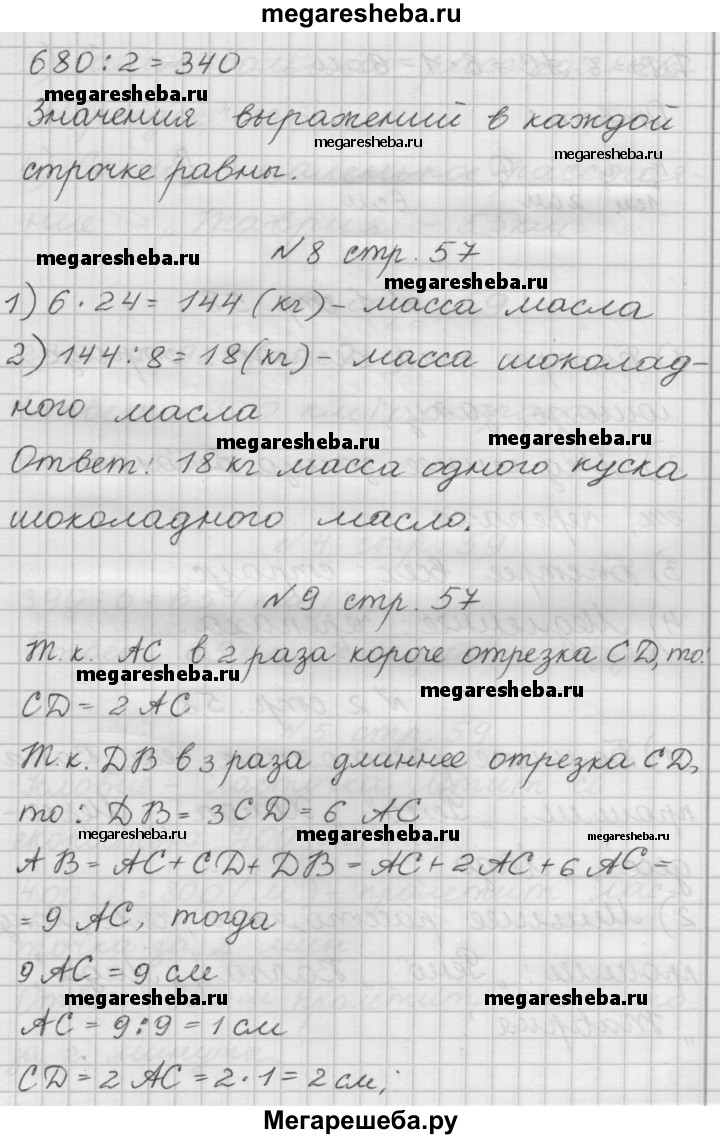 megaresheba.ru
680:2=340
megaresheba.ru
Значения выражений в каждой
megaresheba.ru
megaresheba.ru
строчке равны.
N8 стр. 57
megaresheba.ru
megaresheba.ru
1) 6·24= 144 (кг)- масса масла
2) 144:8=18(кг)- масса шоколад-
ного масла
megaresheba.ru
megaresheba.ru
Ответ: 18 кг масса одного куска
шоколадного масло.
N9 стр. 57
Т.к. AC в 2 раза короче отрезка CD, то:
megaresheba.ru
megaresheba.ru
CD = 2 AC
Т.к. DB в 3 раза длиннее отрезка CD,
то: DB = 3 CD = 6 AC
megaresheba.ru
megaresheba.ru
megaresheba.ru
AB = AC + CD + DB = AC + 2 AC + 6 AC =
= 9 AC, тогда
9 AC = 9 см
megaresheba.ru
megaresheba.ru
AC = 9:9 = 1 см
CD = 2 AC = 2·1 = 2 см;
Мегарешеба.ру